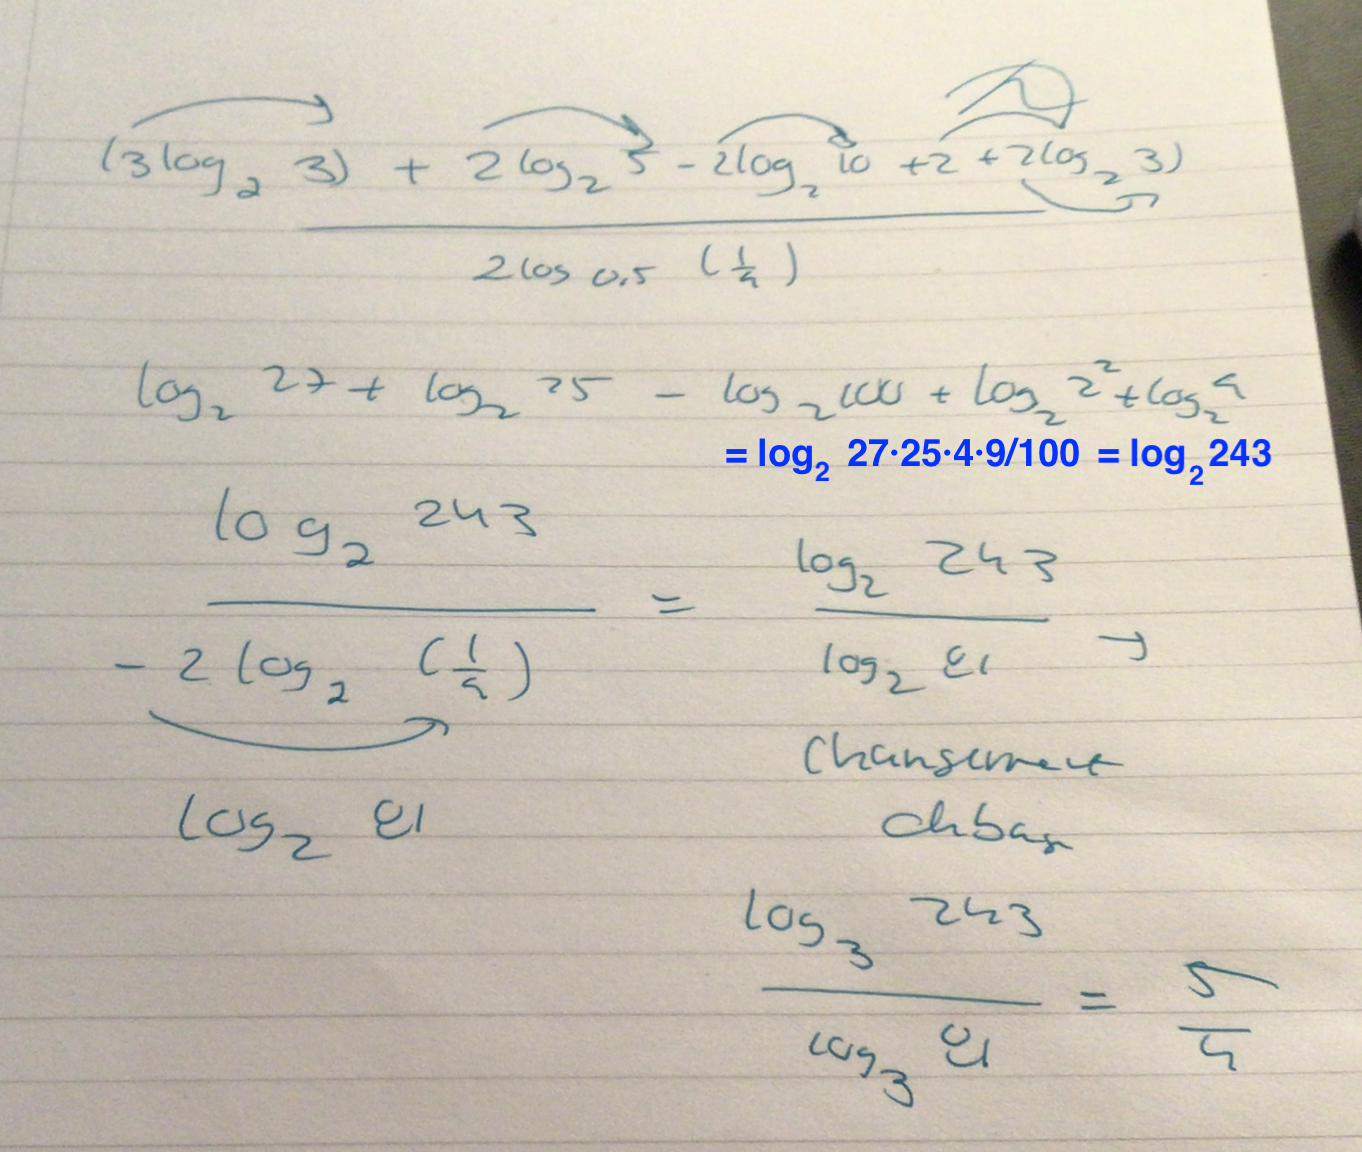 (3log₂ 3) + 2log₂ 5 - 2log₂ 10 + 2 + 2log₂ 3)
2log 0,5 (1/9)
log₂ 27 + log₂ 25 - log₂ 100 + log₂ 2² + log₂ 9
= log₂ 27·25·4·9/100 = log₂ 243
log₂ 243 / - 2 log₂ (1/9) = log₂ 243 / log₂ 81 →
log₂ 81
Changement
de base
log₃ 243 / log₃ 81 = 5/4